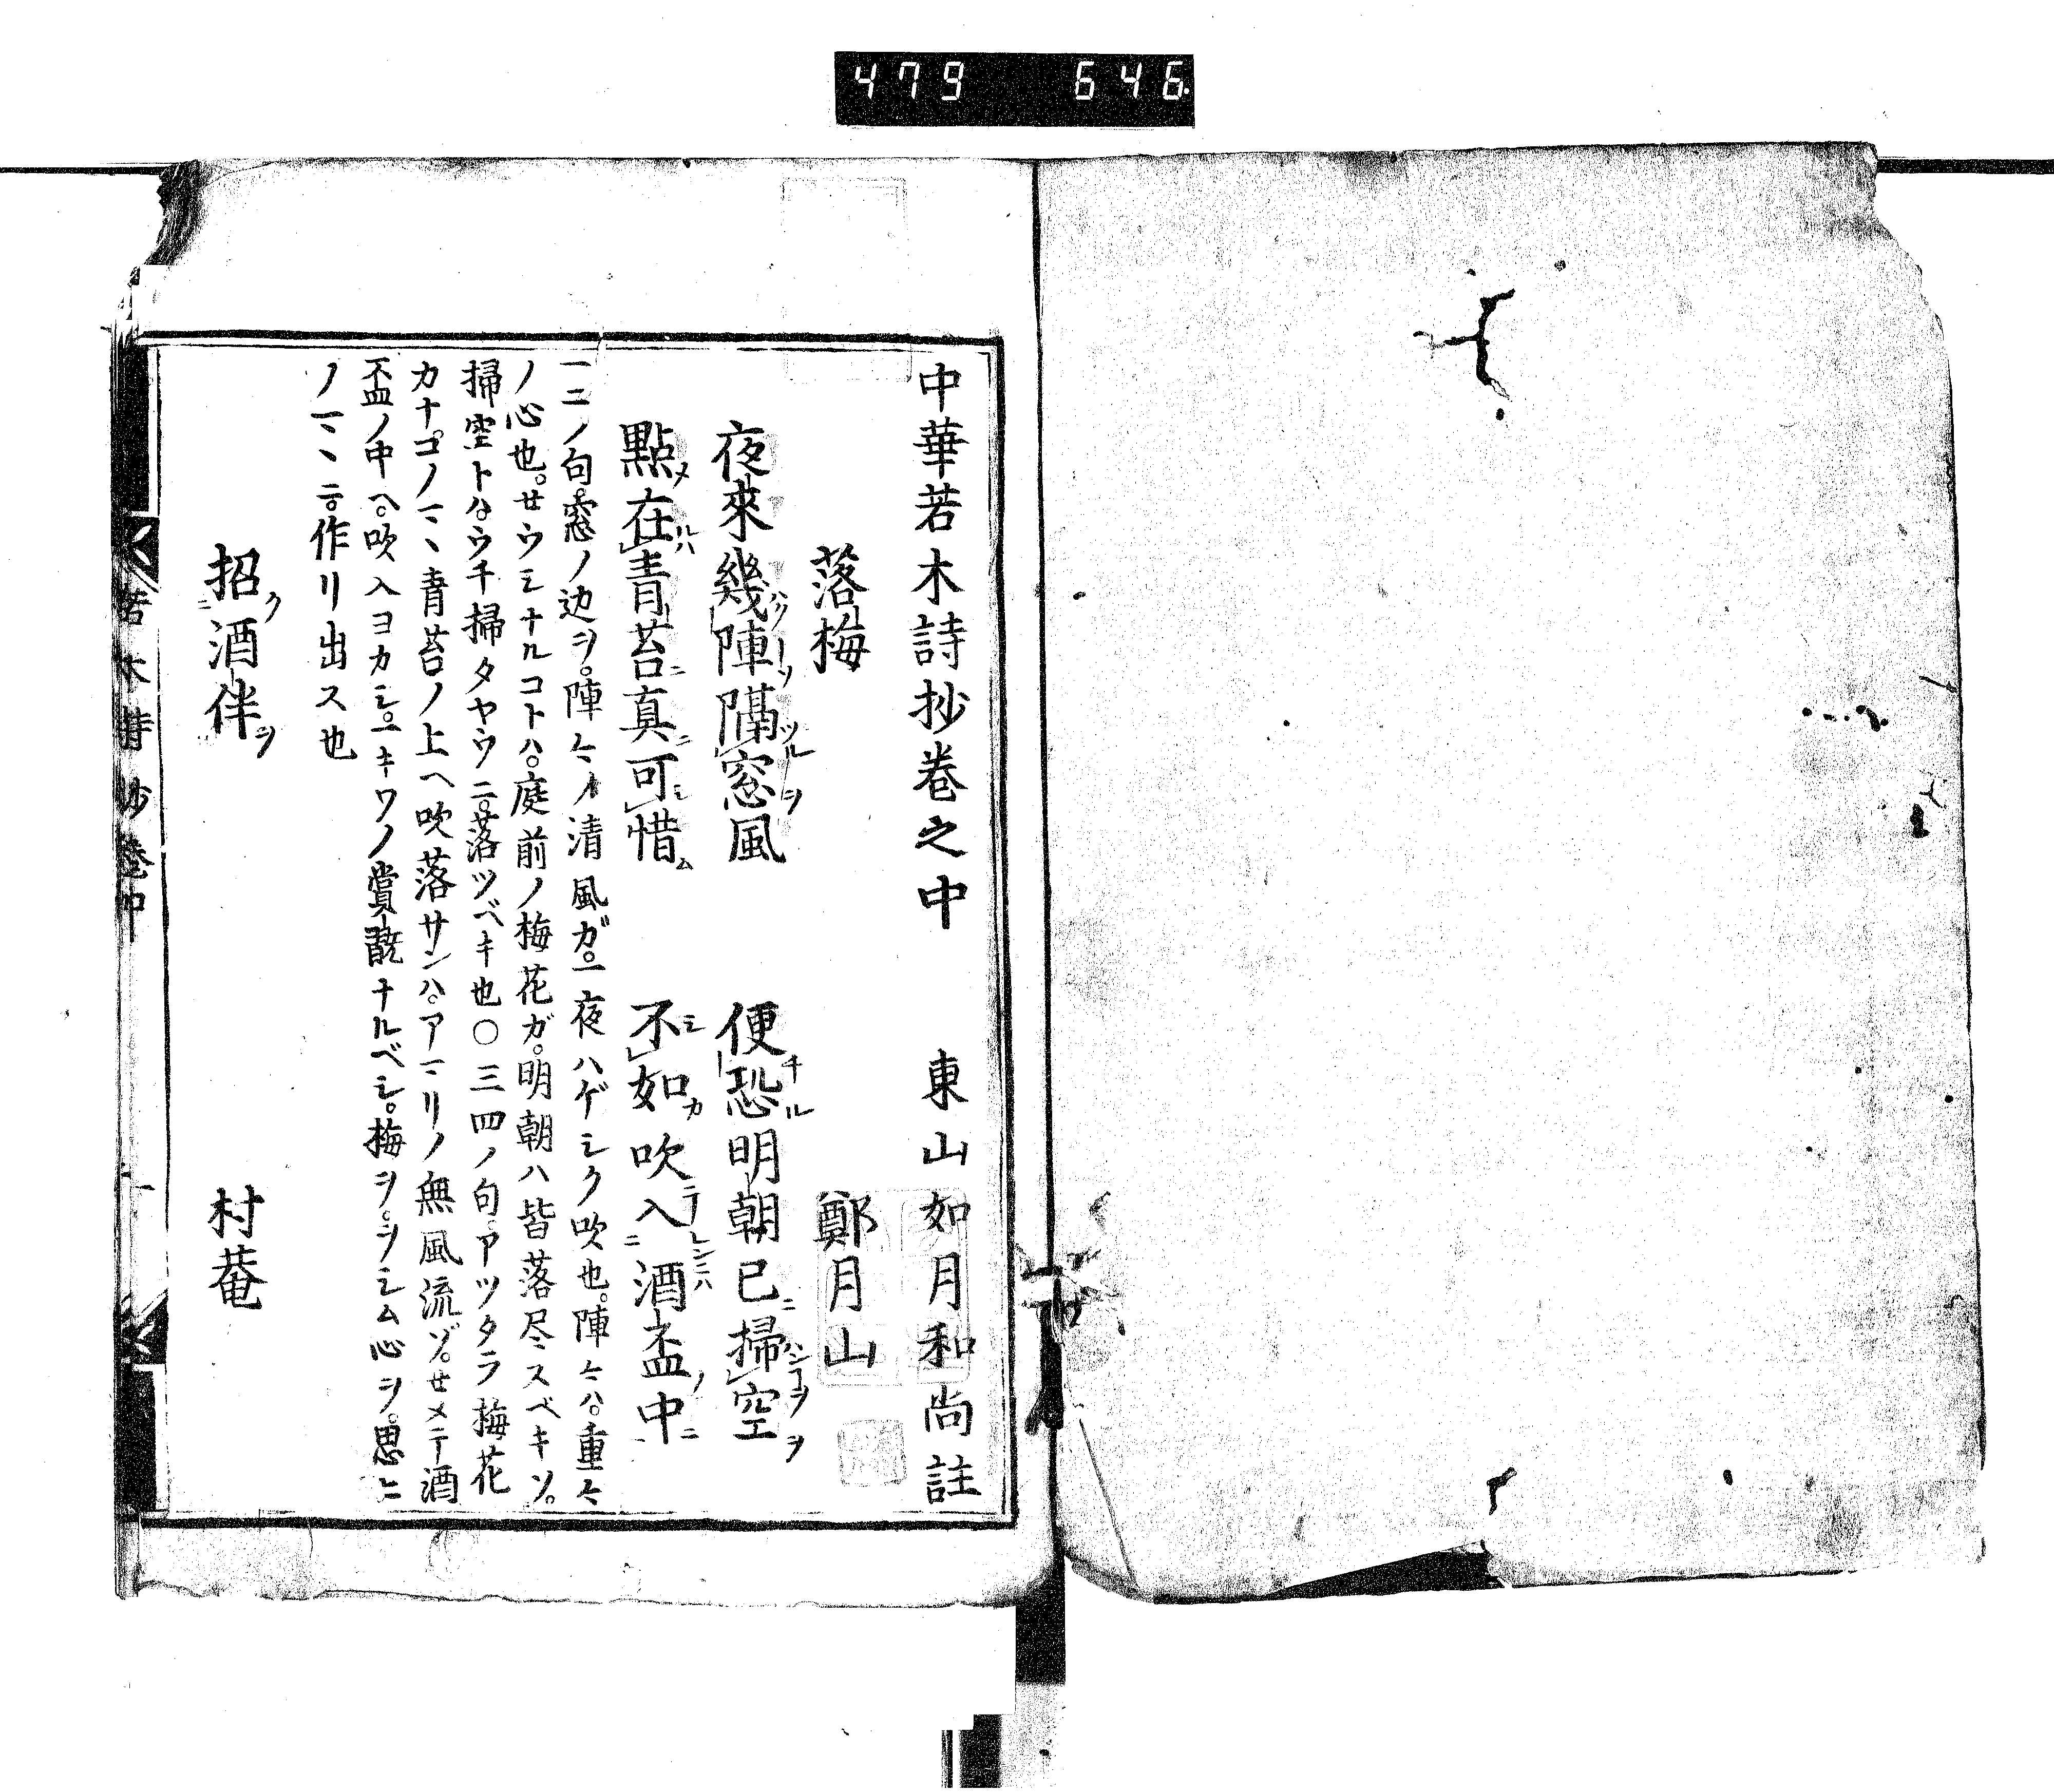 479 646
中華若木詩抄巻之中 東山如月和尚註
落梅 鄭月山
夜來幾陣隔窓風 便恐明朝已掃空
點在青苔真可惜 不如吹入酒盃中
一二ノ句。窓ノ边ヲ。陣〻ノ清風ガ。一夜ハゲシク吹也。陣〻ハ。重〻
ノ心也。サウシナルコトハ。庭前ノ梅花ガ。明朝ハ皆落尽スベキソ。
掃空トハ。ウチ掃タヤウニ。落ツベキ也〇三四ノ句。アツタラ梅花
カナ。コノマヽ青苔ノ上ヘ吹落サンハ。アマリノ無風流ゾ。せメテ酒
盃ノ中ヘ。吹入ヨカシ。一キワノ賞翫ナルベシ。梅ヲ。ヲシム心ヲ。思ヒ
ノマヽニ。作リ出ス也
招酒伴 村菴
若木詩抄巻中 一